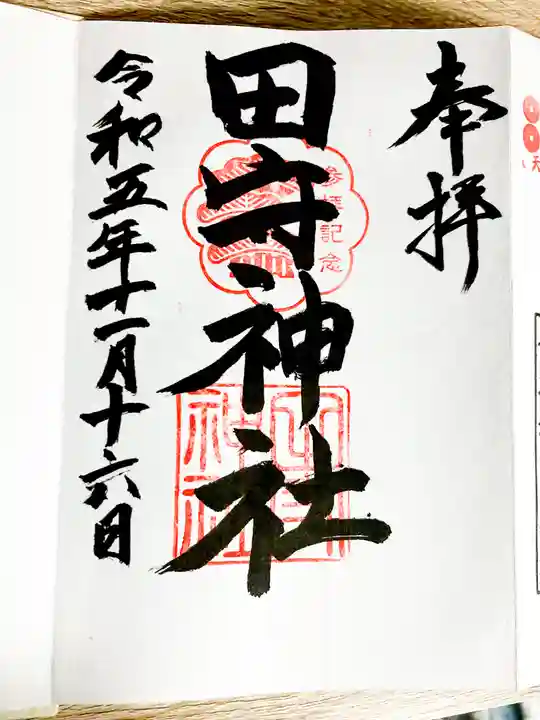 奉拝
参拝記念
田守神社
令和五年十一月十六日
天